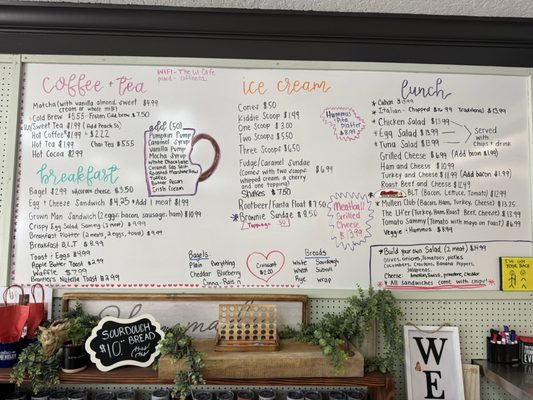 coffee + tea
WIFI- The Ul Cafe
Matcha (with vanilla almond, sweet $4.99
cream or whole milk)
Cold Brew $3.55 - Frozen Cold brew $7.50
Sweet Tea $1.99 (Add Peach .50)
Hot Coffee $1.99 + $2.22
Hot Tea $1.99 Chai Tea $5.55
Hot Cocoa $2.99
add (.50)
Pumpkin Pump
Caramel Syrup
Vanilla Pump
Mocha Syrup
White Chocolate
Caramel Sea Salt
Roasted Marshmallow
Toffee
Butter Pecan
Irish Cream
breakfast
Bagel $2.99 w/cream cheese $3.50
Egg + Cheese Sandwich $4.25 + Add 1 meat $1.99
Grown Man Sandwich (2 eggs, bacon, sausage, ham) $10.99
Crispy Egg Salad Sammy (3 meats) $9.99
Breakfast Platter (2 meats, 2 eggs, toast) $9.99
Breakfast B.L.T $8.99
Toast + Eggs $4.99
Apple Butter Toast $2.99
Waffle $7.99
Banners Nutella Toast $2.99
ice cream
Cones $.50
Kiddie Scoop $1.99
One Scoop $3.00
Two Scoops $5.50
Three Scoops $6.50
Fudge/Caramel Sundae
(Comes with two scoops $6.99
whipped cream, a cherry
and one topping)
Shakes $7.50
Rootbeer/Fanta Float $7.50
*Brownie Sundae $8.50
1 Topping .50
Hummus
+ Pita
Platter
$8.99
Meatball
Grilled
Cheese
$9.99
Bagels
Plain Everything
Cheddar Blueberry
Cinna-Raisin
Croissant
$2.00
Breads
White Sourdough
Wheat Subun
Rye Wrap
lunch
* Cuban $13.99
* Italian - Chopped $16.99 Traditional $13.99
* Chicken Salad $13.99
* Egg Salad $13.99
* Tuna Salad $13.99
Served
with
chips + drink
Grilled Cheese $6.99 (Add bacon $1.99)
Ham and Cheese $10.99
Turkey and Cheese $11.99 (Add bacon $1.99)
Roast Beef and Cheese $12.99
B.L.T (Bacon, Lettuce, Tomato) $12.99
* Mullen Club (Bacon, Ham, Turkey, Cheese) $13.25
The Ul'Fer (Turkey, Ham, Roast Beef, Cheese) $13.99
Tomato Sammy (Tomato with mayo on Toast) $6.99
Veggie + Hummus $8.99
* Build your own Salad (2 meat) $14.99
(Lettuce, Tomatoes, onions, pickles,
cucumbers, Croutons, Banana Peppers,
Jalapenos,
Cheese American, Swiss, provolone, cheddar
* All salads come with chips!
GOT
YOUR
BACK
SOURDOUGH
$10.
BREAD
WE